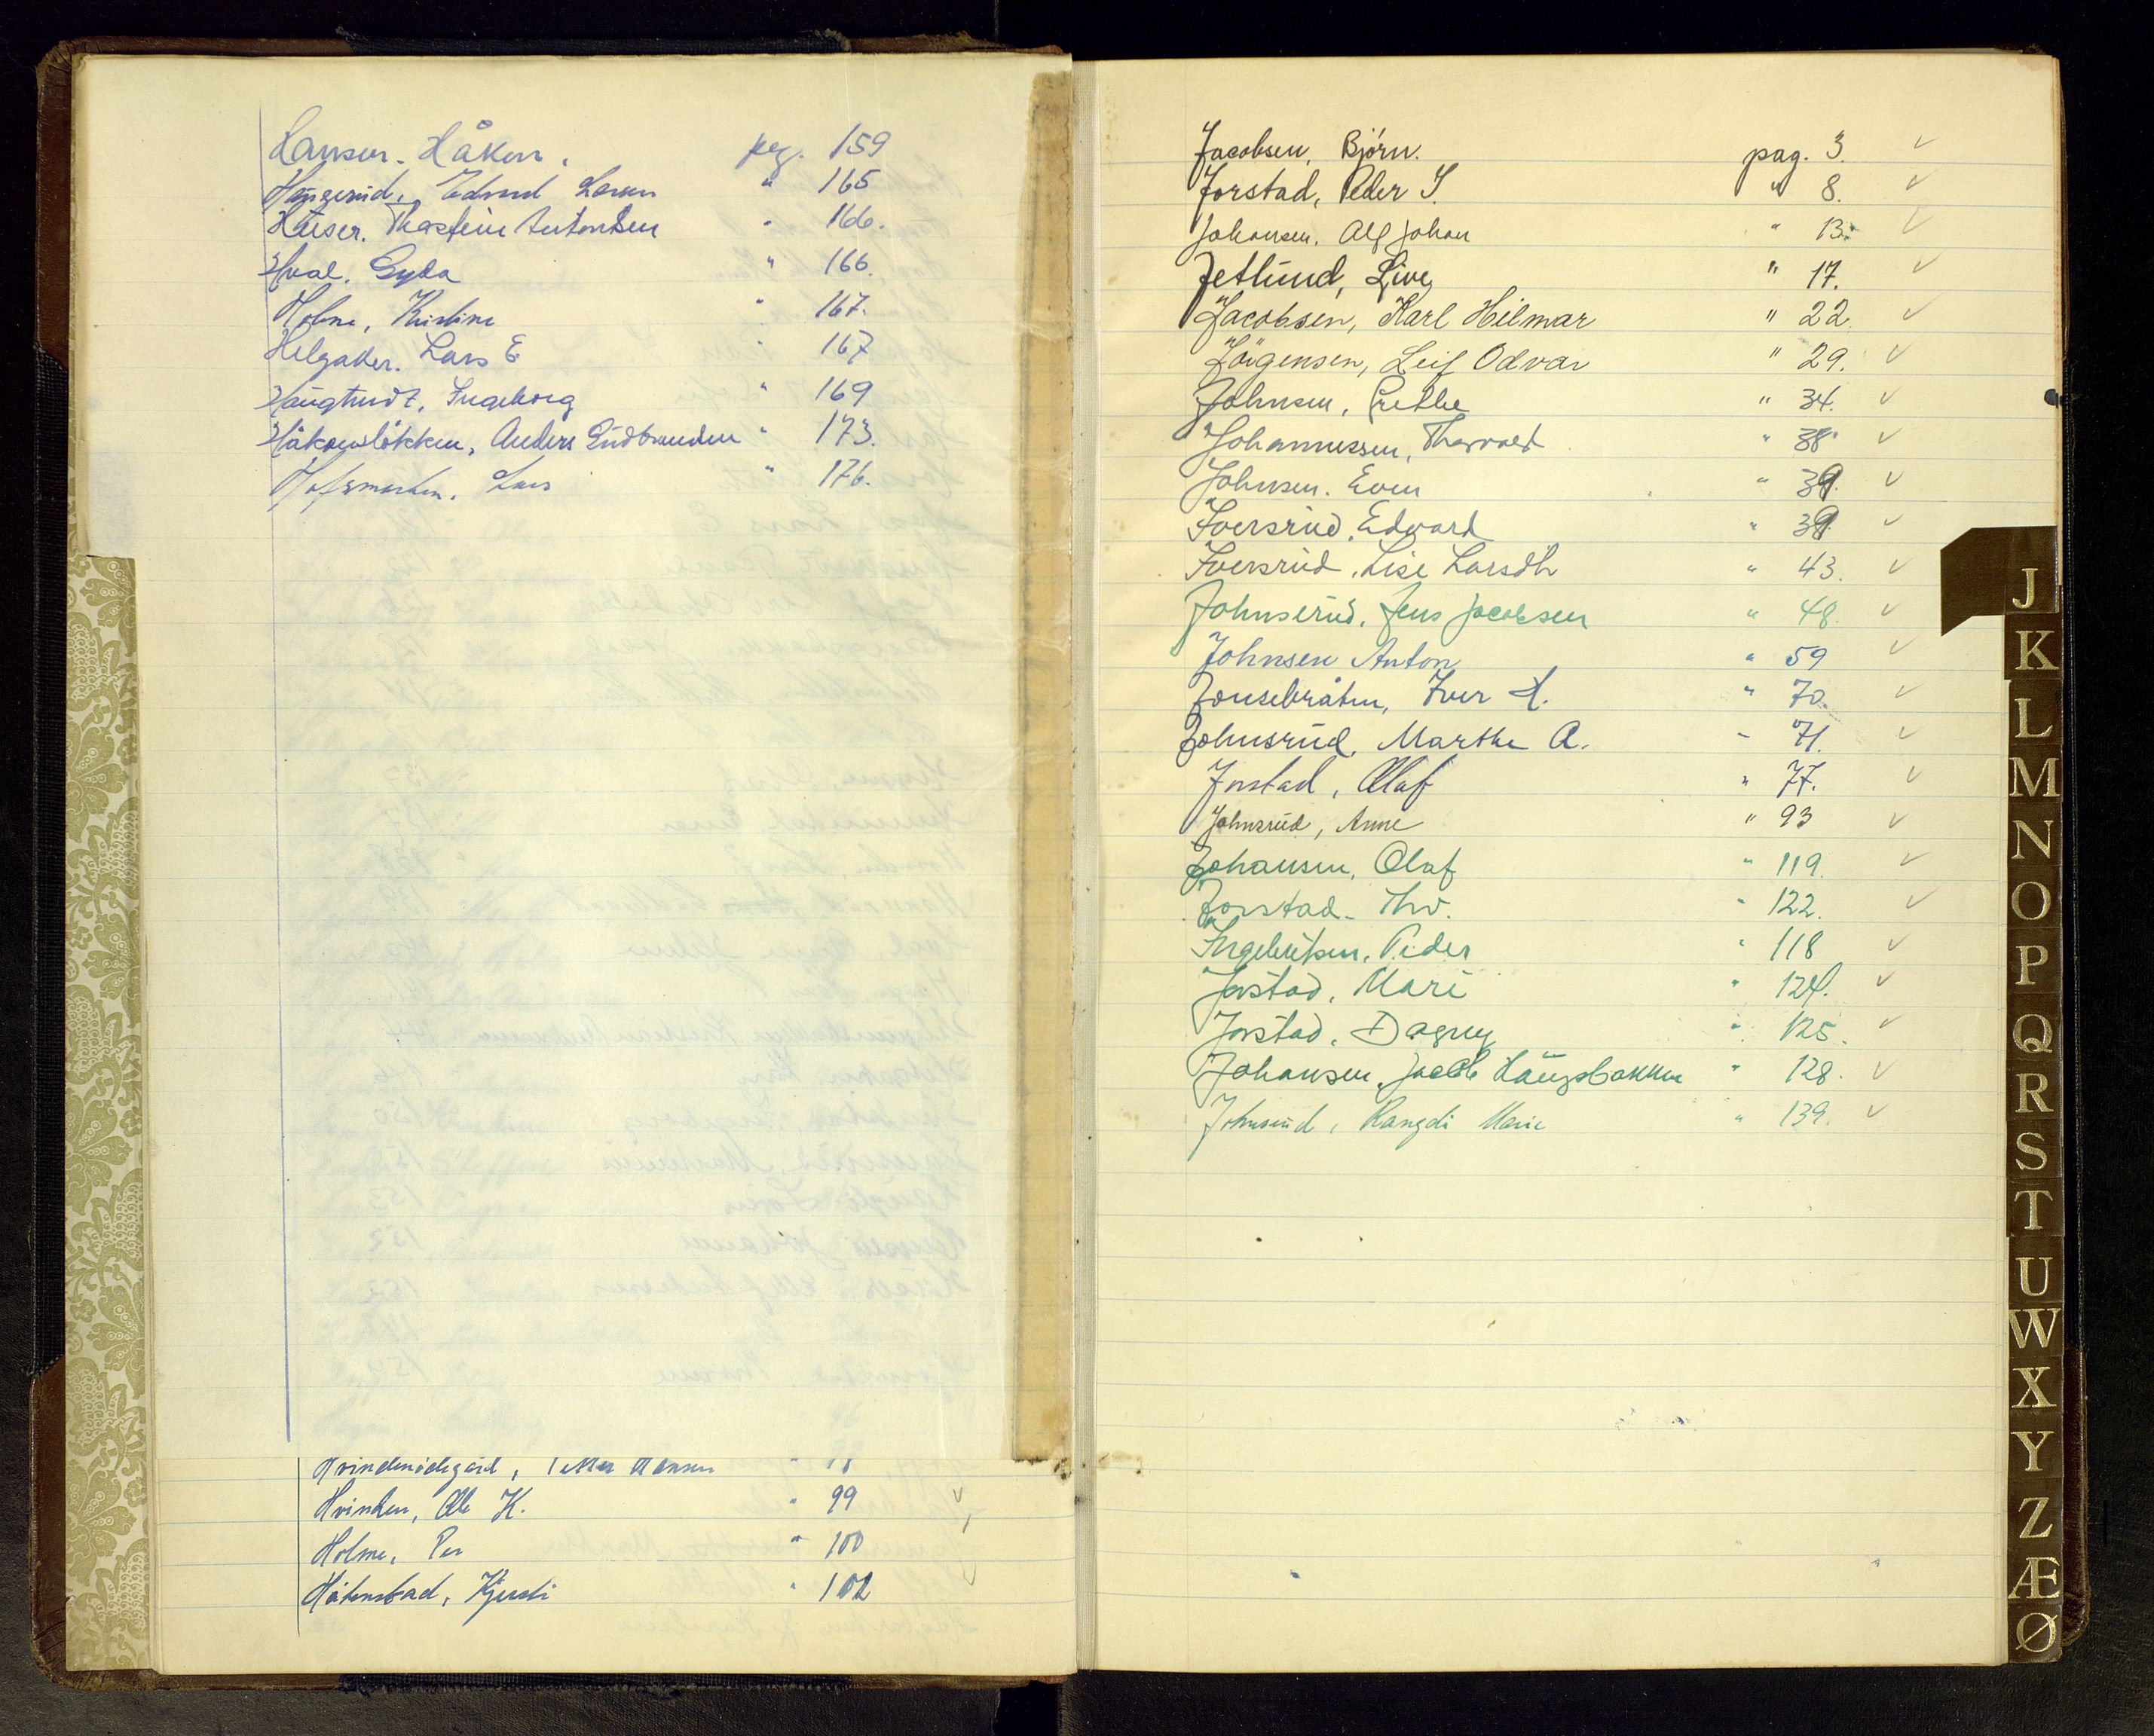 Hansen. Håkon. pag. 159
Haugerud, Edvard Larsen " 165
Huser. Thorstein Antonsen " 166.
Hval. Gyda " 166.
Holme, Kristine " 167.
Helgaker. Lars E " 167
Haugtvedt, Ingeborg " 169
Håkonsløkken, Anders Gudbrandsen " 173.
Hofsmarken. Lars " 176.
Hvindenødegård, Petter Hansen "
Hvinden, Ole K. " 99
Holme, Per " 100
Håkenstad, Kjersti " 102
Jacobsen, Bjørn. pag. 3.
Jorstad, Peder I. " 8.
Johansen, Alf Johan " 13.
Jetlund, Live " 17.
Jacobsen, Karl Hilmar " 22
Jörgensen, Leif Odvar " 29.
Johnsen, Grethe " 34.
Johannessen, Thorvald " 38
Johnsen. Even " 39.
Iversrud, Edvard " 39
Iversrud, Lise Larsdtr " 43.
Johnserud, Jens Jacobsen " 48.
Johnsen Anton " 59
Jonsebråten, Iver H. " 70.
Johnsrud, Marthe A. " 71.
Jorstad, Olaf " 77.
Johnsrud, Anne " 93
Johansen, Olaf " 119.
Jorstad. Thv. " 122.
Ingebritsen, Peder " 118
Jorstad, Mari " 124.
Jorstad, Dagny " 125.
Johansen, Jacob Haugsbakken " 128.
Johnsrud, Rangdi Marie " 139.
J
K
L
M
N
O
P
Q
R
S
T
U
W
X
Y
Z
Æ
Ø